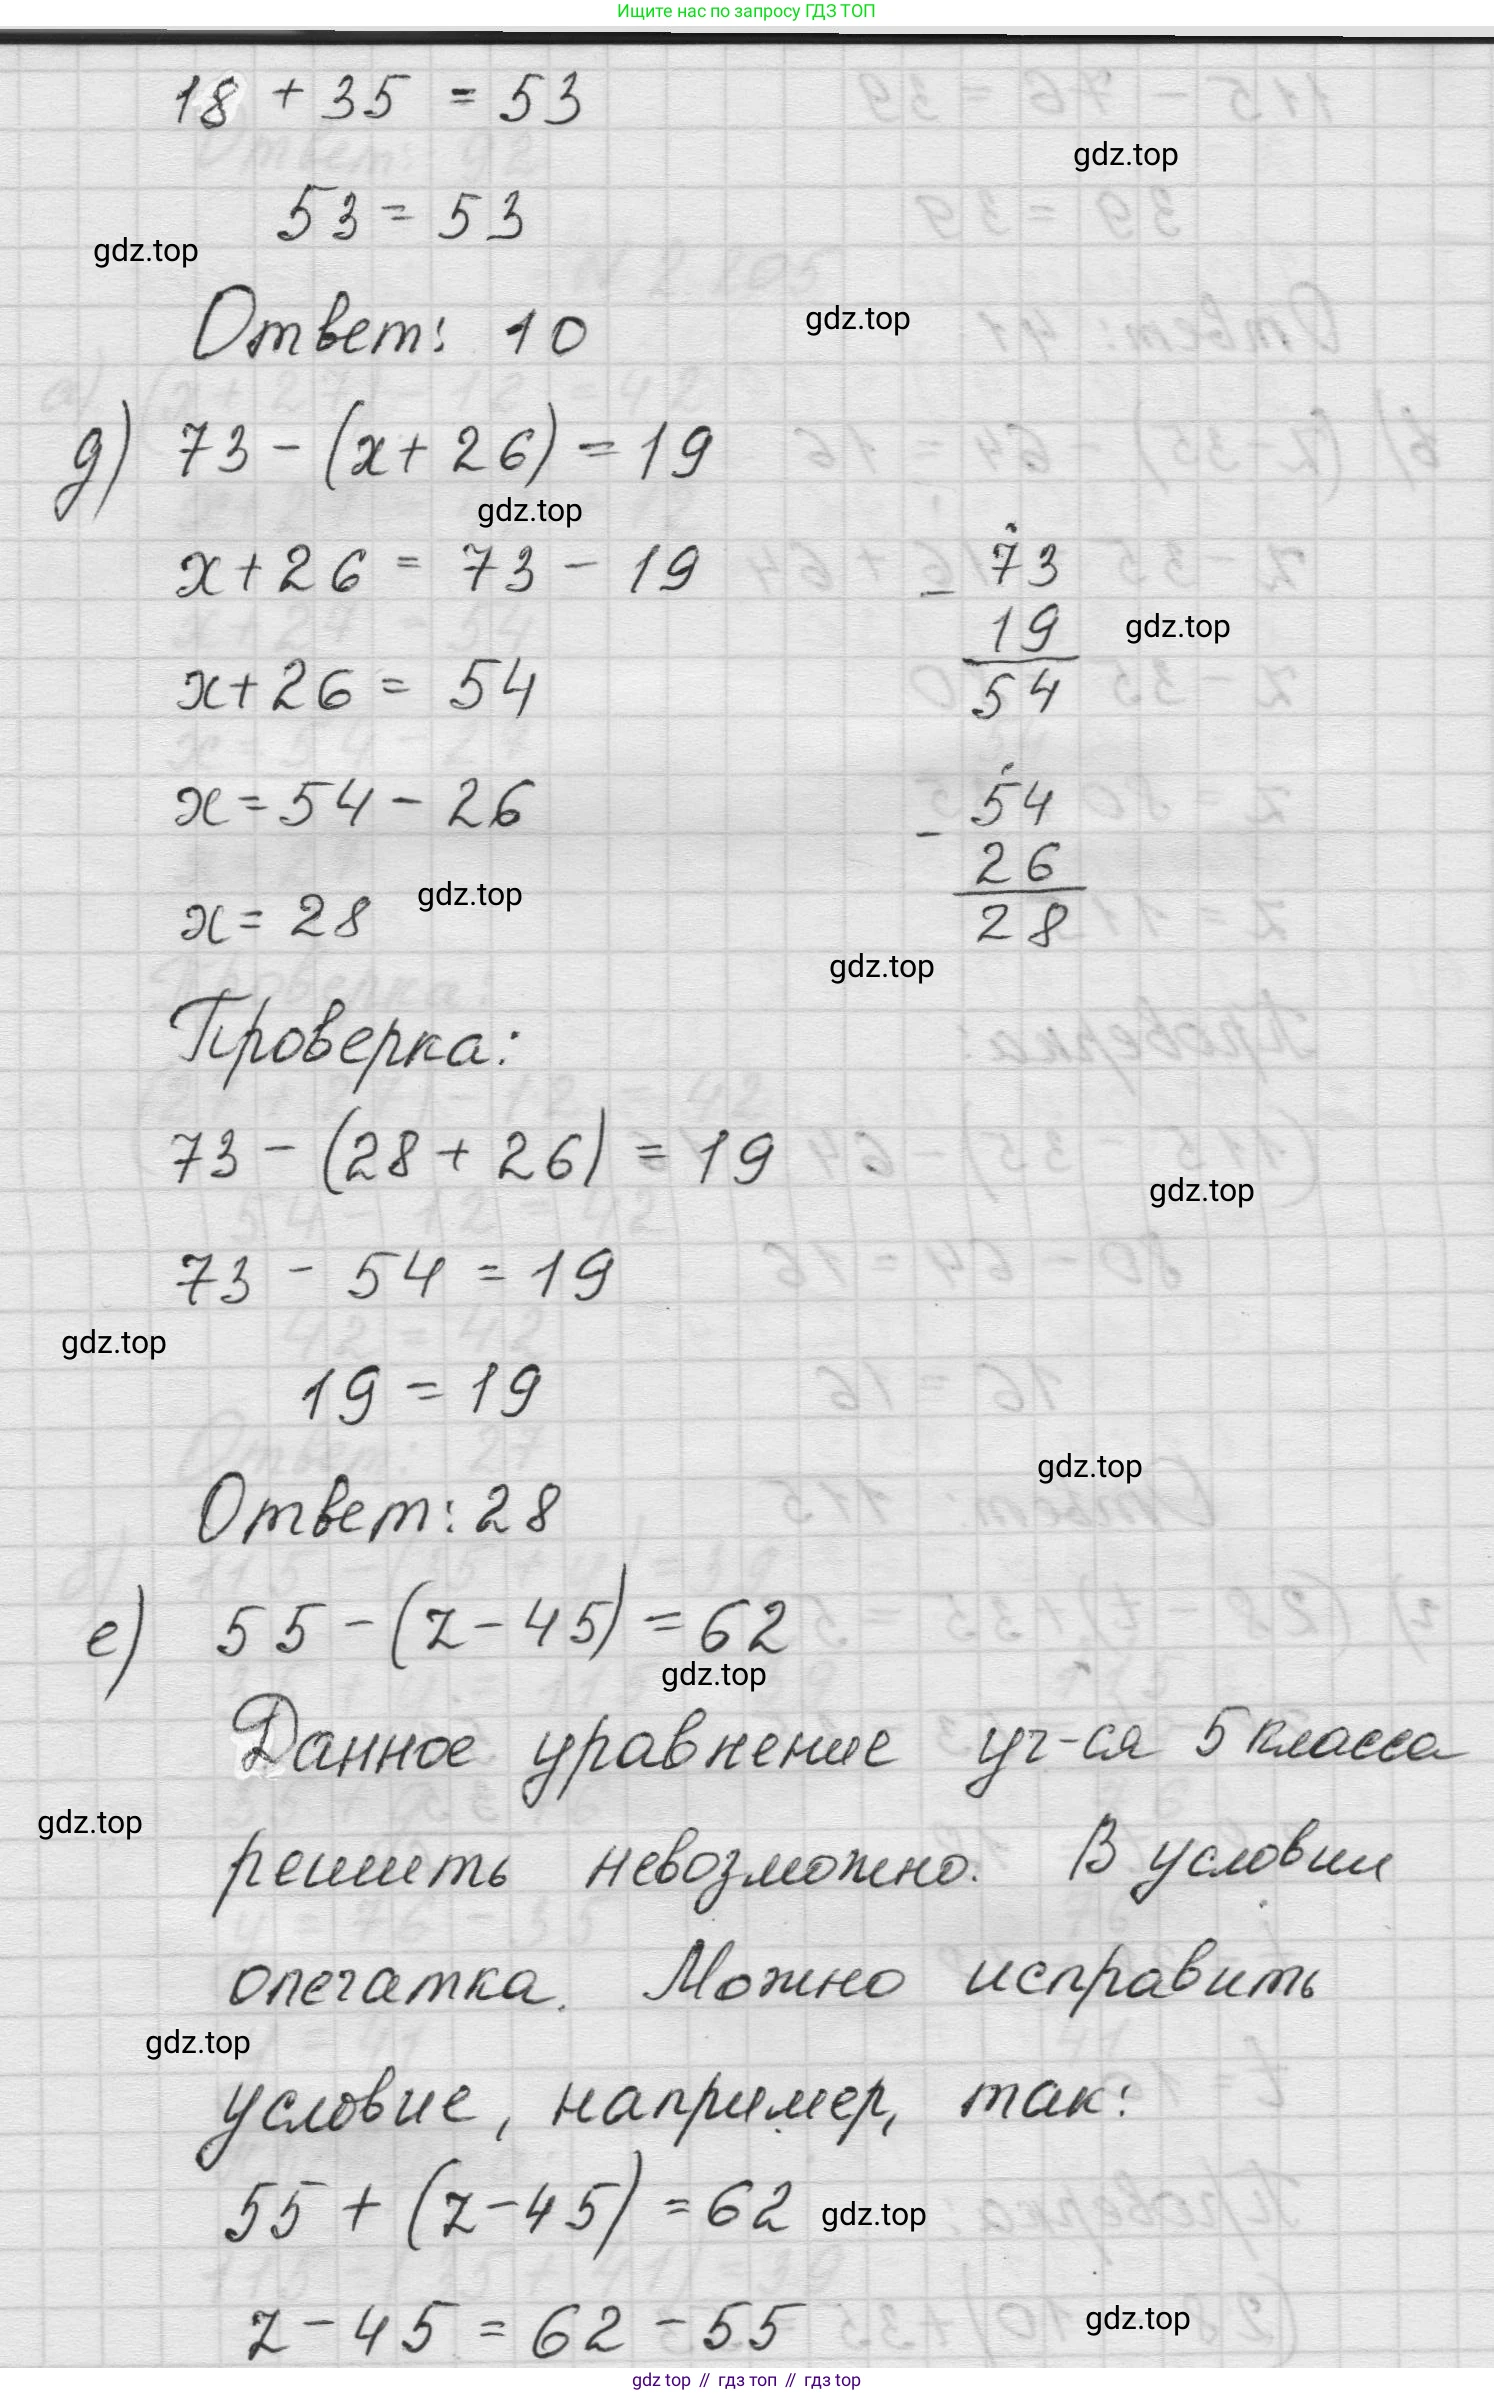 Ищите нас по запросу ГДЗ ТОП
18 + 35 = 53
gdz.top
53 = 53
gdz.top
Ответ: 10
gdz.top
д) 73 - (x + 26) = 19
gdz.top
x + 26 = 73 - 19
73
- 19
54
gdz.top
x + 26 = 54
x = 54 - 26
54
- 26
28
x = 28
gdz.top
gdz.top
Проверка:
73 - (28 + 26) = 19
gdz.top
73 - 54 = 19
gdz.top
19 = 19
gdz.top
Ответ: 28
е) 55 - (z - 45) = 62
gdz.top
Данное уравнение уч-ся 5 класса
gdz.top
решить невозможно. В условии
опечатка. Можно исправить
gdz.top
условие, например, так:
55 + (z - 45) = 62
gdz.top
z - 45 = 62 - 55
gdz.top
gdz top // гдз топ // гдз top